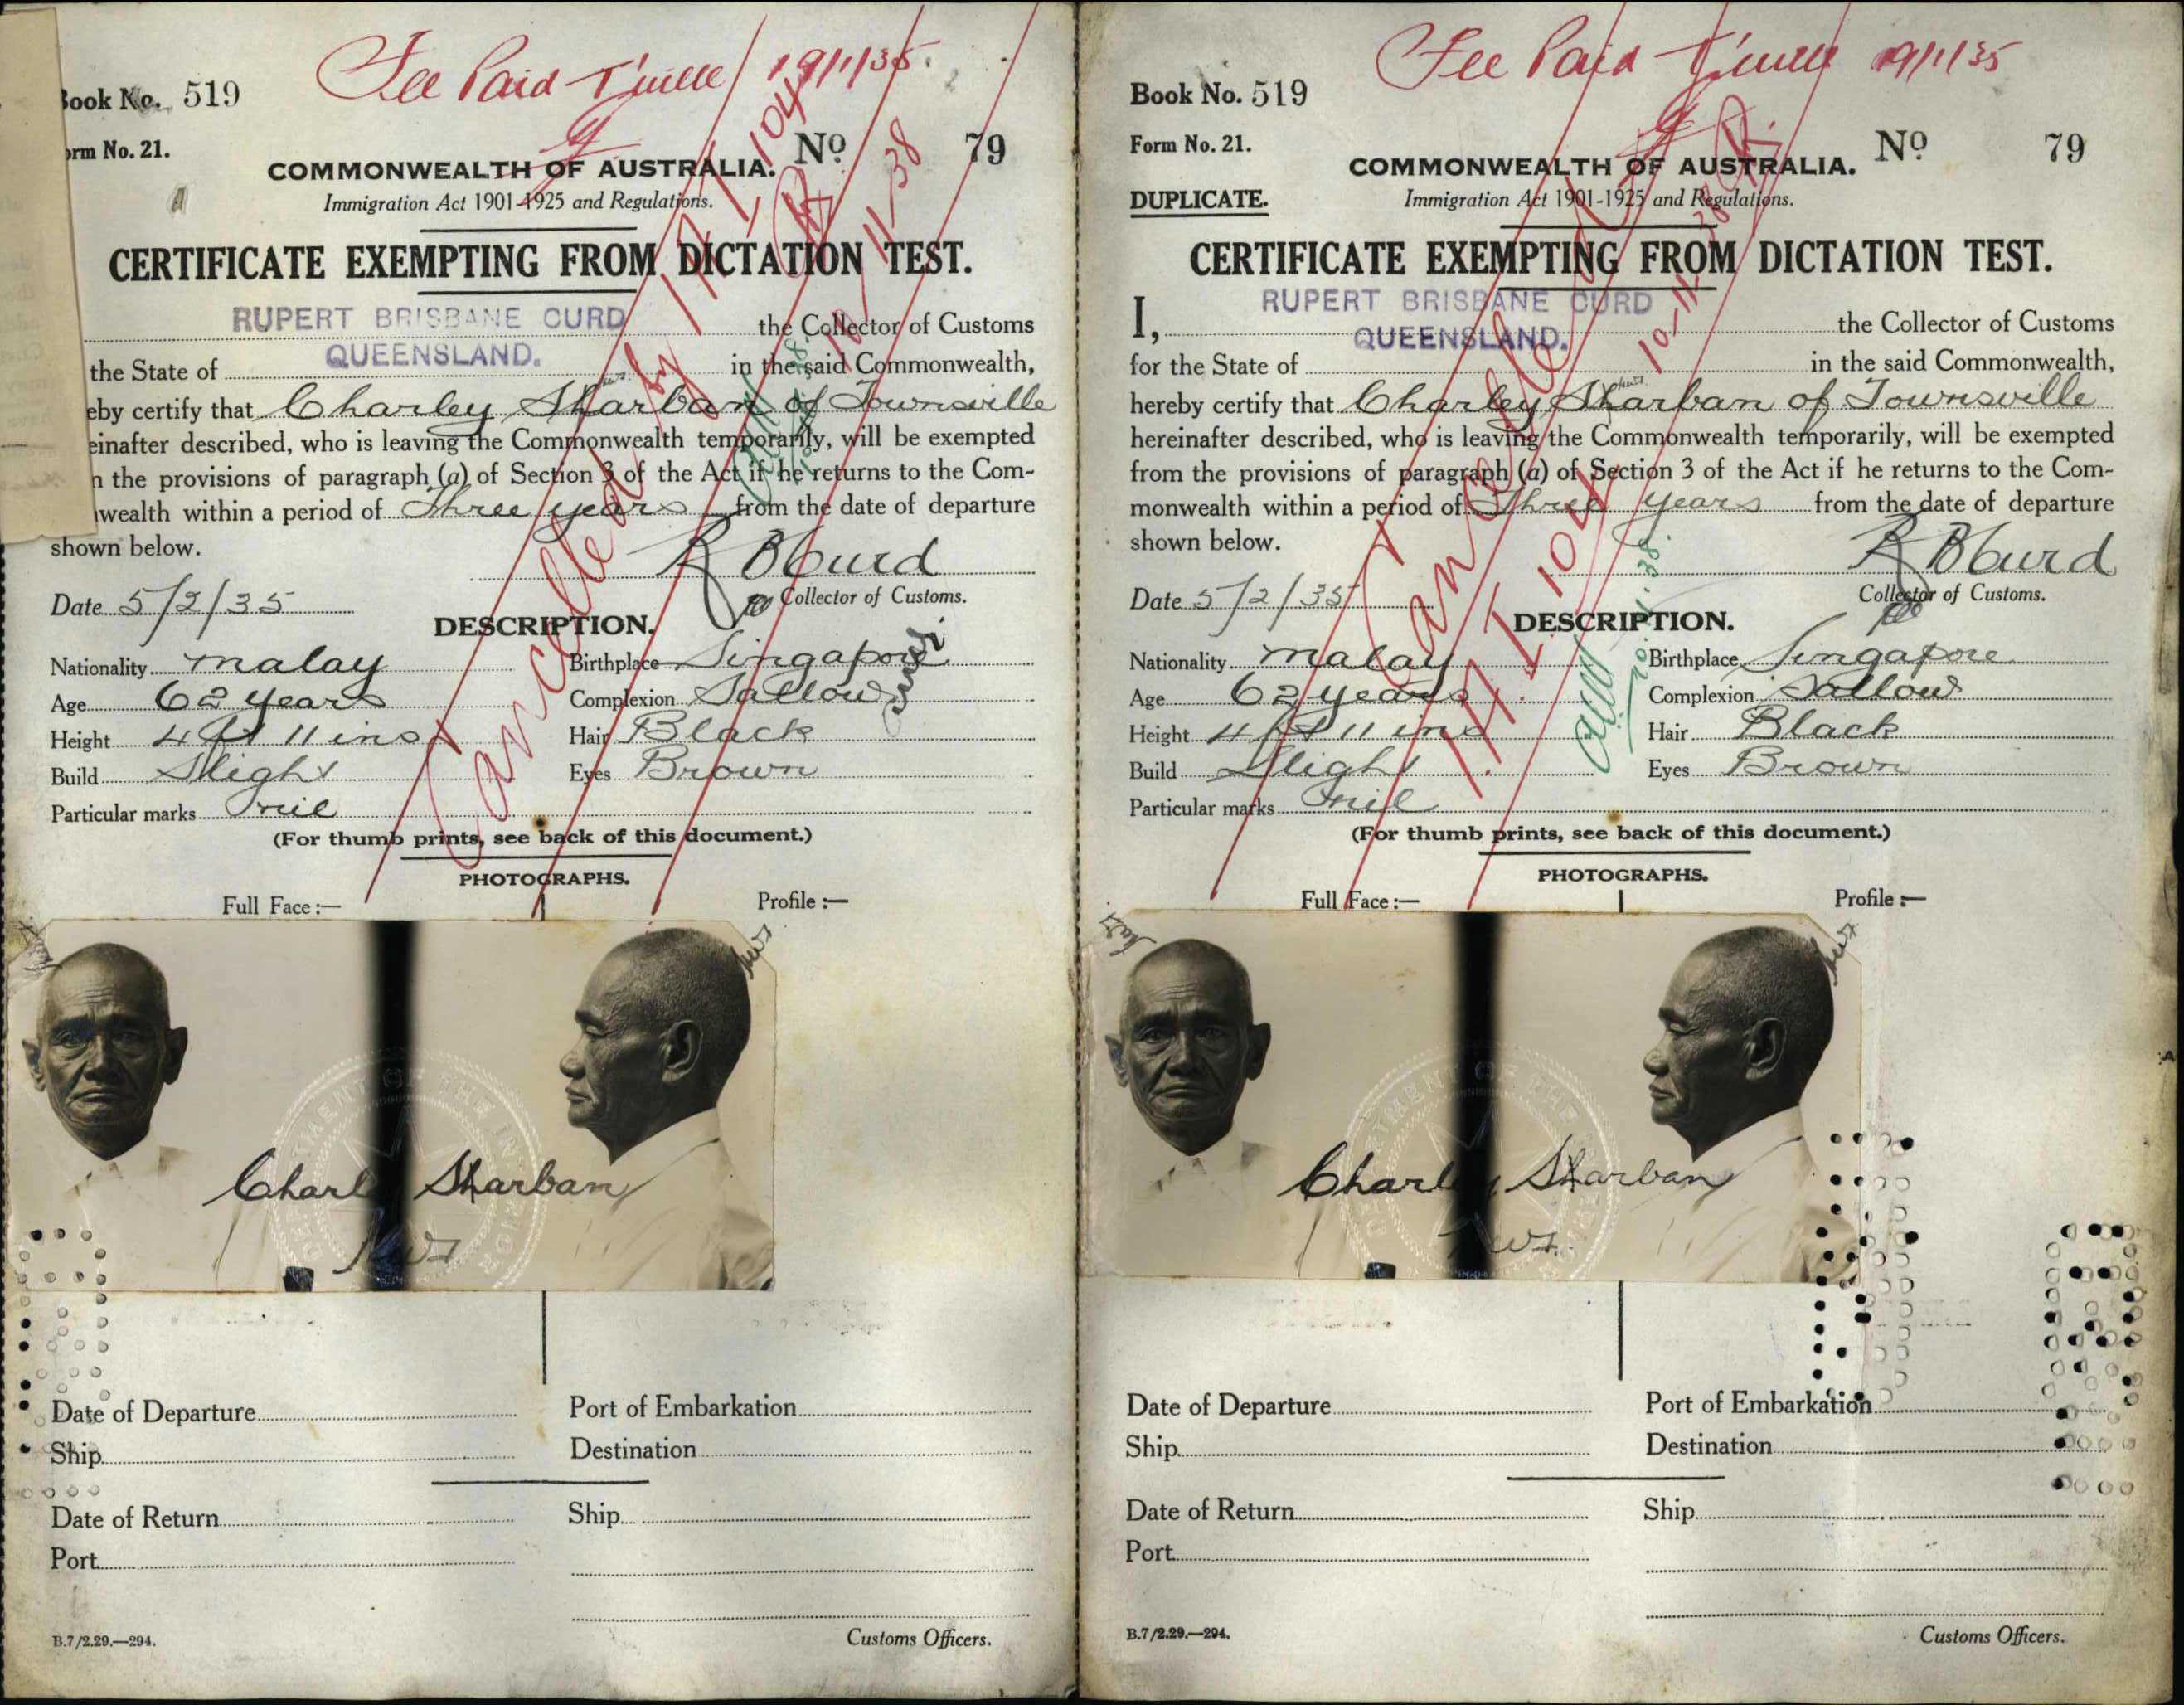 Fee Paid T'ville 19/1/35.
Book No. 519
orm No. 21.
No 79
COMMONWEALTH OF AUSTRALIA.
Immigration Act 1901-1925 and Regulations.
CERTIFICATE EXEMPTING FROM DICTATION TEST.
RUPERT BRISBANE CURD the Collector of Customs
the State of QUEENSLAND. in the said Commonwealth,
eby certify that Charley Sharban of Townsville
einafter described, who is leaving the Commonwealth temporarily, will be exempted
n the provisions of paragraph (a) of Section 3 of the Act if he returns to the Com-
wealth within a period of Three years from the date of departure
shown below.
R B Curd
Date 5/2/35 Collector of Customs.
DESCRIPTION.
Nationality malay Birthplace Singapore
Age 62 years Complexion Sallow
Height 4 ft 11 ins Hair Black
Build Slight Eyes Brown
Particular marks nil
(For thumb prints, see back of this document.)
PHOTOGRAPHS.
Full Face :— Profile :—
Cancelled by
10/11-38
DEPARTMENT OF THE INTERIOR
Charley Sharban
Date of Departure Port of Embarkation
Ship Destination
Date of Return Ship
Port
B.7/2.29.—294. Customs Officers.
Fee Paid T'ville 19/1/35
Book No. 519
Form No. 21.
No 79
COMMONWEALTH OF AUSTRALIA.
DUPLICATE.
Immigration Act 1901-1925 and Regulations.
CERTIFICATE EXEMPTING FROM DICTATION TEST.
I, RUPERT BRISBANE CURD the Collector of Customs
for the State of QUEENSLAND. in the said Commonwealth,
hereby certify that Charley Sharban of Townsville
hereinafter described, who is leaving the Commonwealth temporarily, will be exempted
from the provisions of paragraph (a) of Section 3 of the Act if he returns to the Com-
monwealth within a period of Three years from the date of departure
shown below.
R B Curd
Date 5/2/35 Collector of Customs.
DESCRIPTION.
Nationality malay Birthplace Singapore
Age 62 years Complexion Sallow
Height 4 ft 11 ins Hair Black
Build Slight Eyes Brown
Particular marks nil
(For thumb prints, see back of this document.)
PHOTOGRAPHS.
Full Face :— Profile :—
Cancelled
10-11-38
DEPARTMENT OF THE INTERIOR
Charley Sharban
Date of Departure Port of Embarkation
Ship Destination
Date of Return Ship
Port
B.7/2.29.—294. Customs Officers.